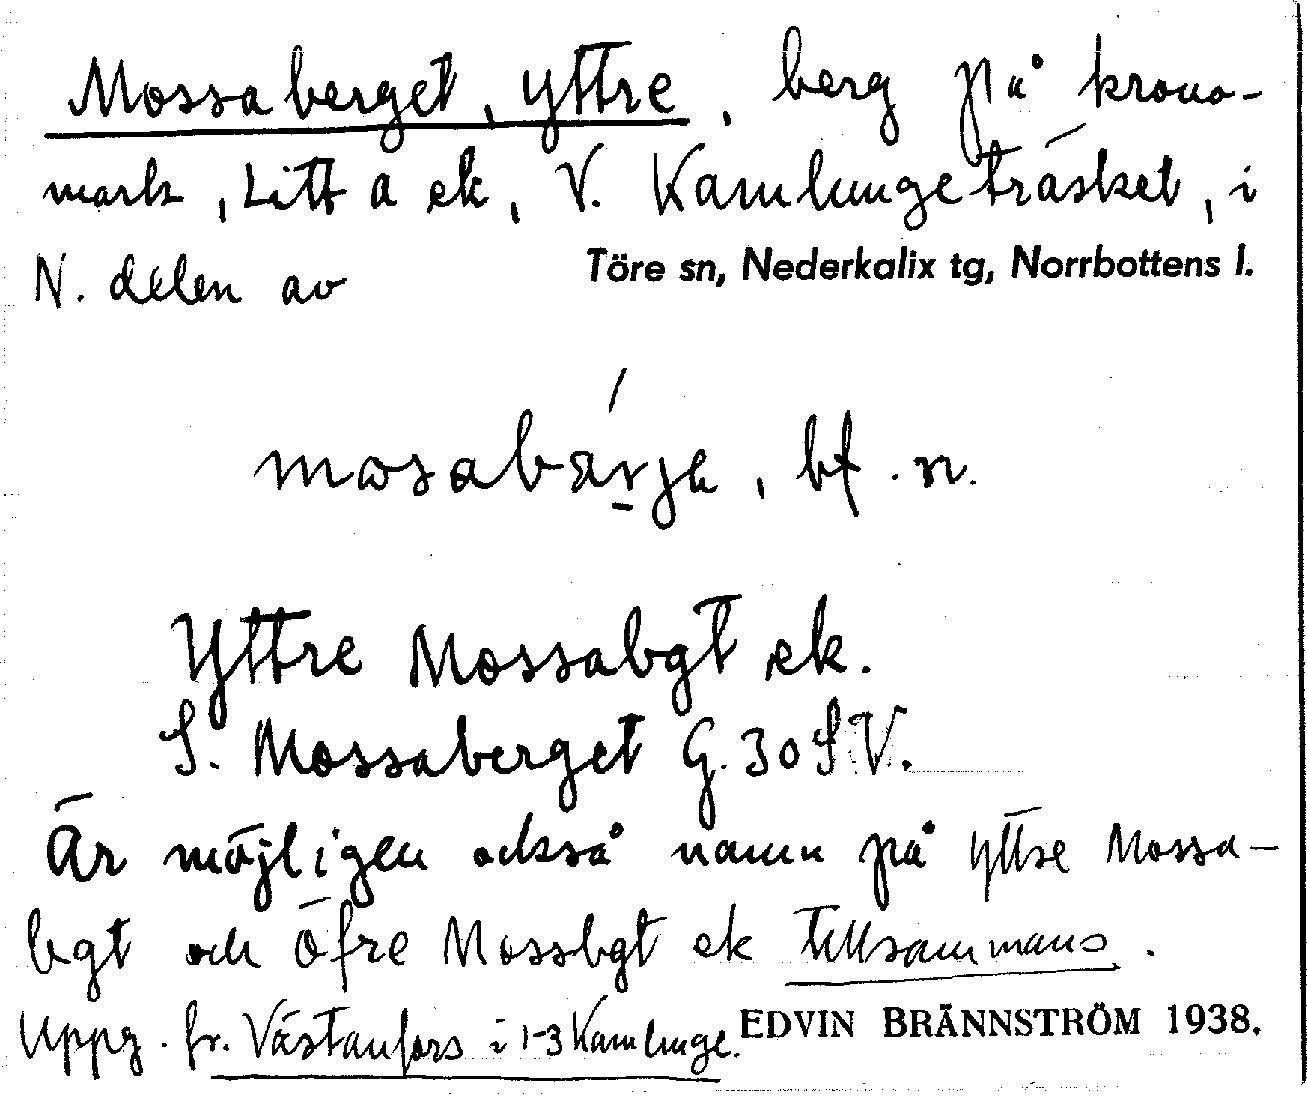 Mossaberget, yttre, berg på krono-
mark, Litt a ek, V. Kamlungeträsket, i
N. delen av Töre sn, Nederkalix tg, Norrbottens l.
mosabärje, bf. n.
Yttre Mossabgt ek.
S. Mossaberget G. 30 SV.
Är möjligen också namn på yttre Mossa-
bgt och Öfre Mossbgt ek tillsammans.
Uppg. fr. Västanfors i 1-3 Kamlunge. EDVIN BRÄNNSTRÖM 1938.